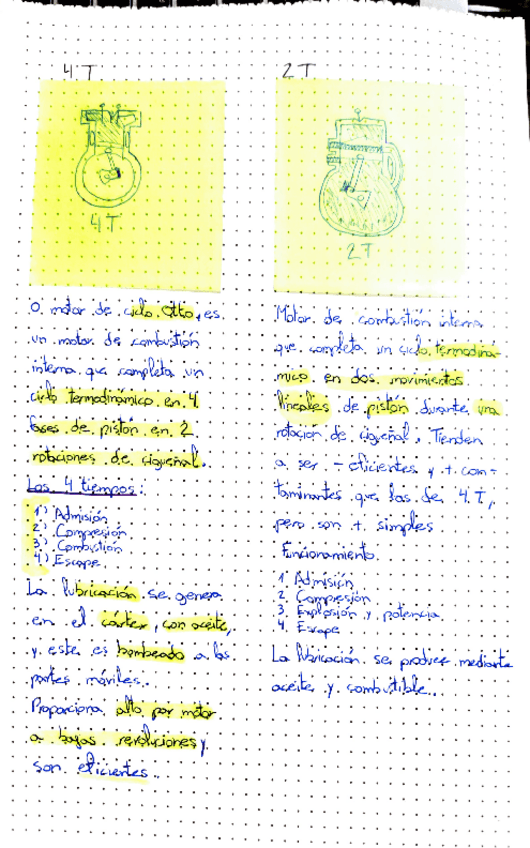 4 T
4 T
O motor de ciclo Otto, es
un motor de combustión
interna que completa un
ciclo termodinámico en 4
fases de pistón en 2
rotaciones de cigueñal.
Los 4 tiempos:
1) Admisión
2) Compresión
3) Combustión
4) Escape
La lubricación se genera
en el cárter, con aceite,
y este es bombeado a las
partes móviles.
Proporciona alto par motor
a bajas revoluciones y
son eficientes.
2 T
2 T
Motor de combustión interna
que completa un ciclo termodiná-
mico en dos movimientos
lineales de pistón durante una
rotación de cigueñal. Tienden
a ser - eficientes y + con-
taminantes que los de 4 T,
pero son + simples
Funcionamiento
1 Admisión
2 Compresión
3 Explosión y potencia
4 Escape
La lubricación se produce mediante
aceite y combustible.